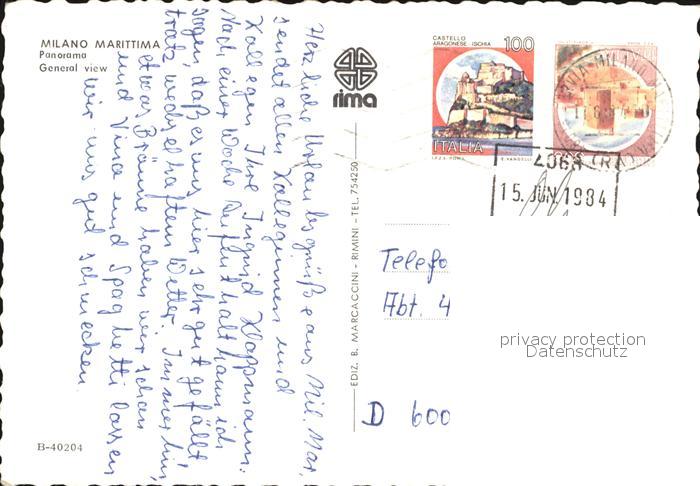 MILANO MARITTIMA
Panorama
General view
Herzliche Urlaubsgrüße aus Mil. Mar.
sendet allen Kolleginnen und
Kollegen Ihre Ingrid
Nach einer Woche Aufenthalt kann ich
sagen, daß es uns hier sehr gut gefällt
trotz wechselhaftem Wetter. Immerhin,
etwas Bräune haben wir schon
und Vino und Spaghetti lassen
wir uns gut schmecken.
B-40204
rima
EDIZ. B. MARCACCINI - RIMINI - TEL. 754250
CASTELLO
ARAGONESE - ISCHIA
100
ITALIA
I.P.Z.S. - ROMA
E. VANGELLI
15. JUN. 1984
Telefo
Abt. 4
D 600
privacy protection
Datenschutz